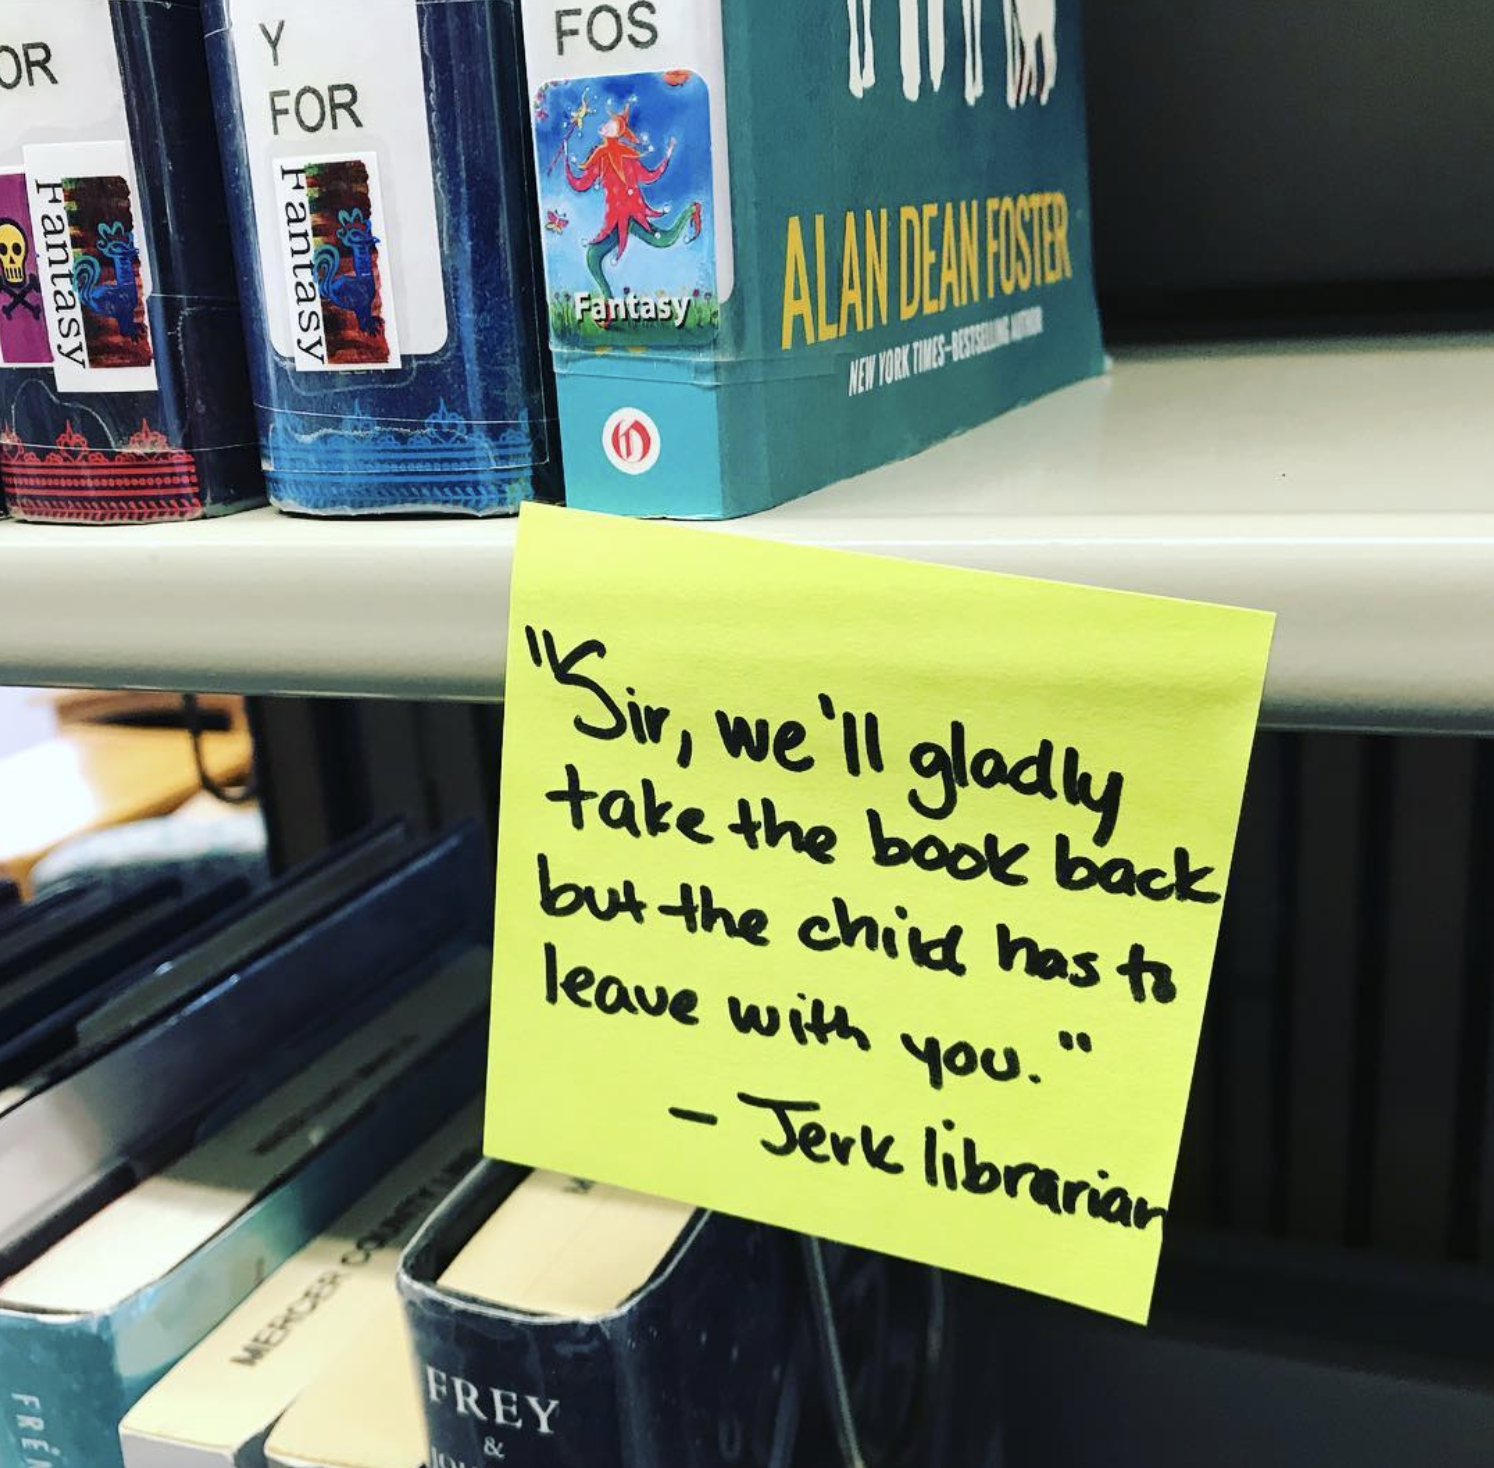 OR
Y
FOR
FOS
Fantasy
Fantasy
Fantasy
ALAN DEAN FOSTER
NEW YORK TIMES–BESTSELLING AUTHOR
"Sir, we'll gladly
take the book back
but the child has to
leave with you."
- Jerk librarian
MERCER COUNTY
FREY
&